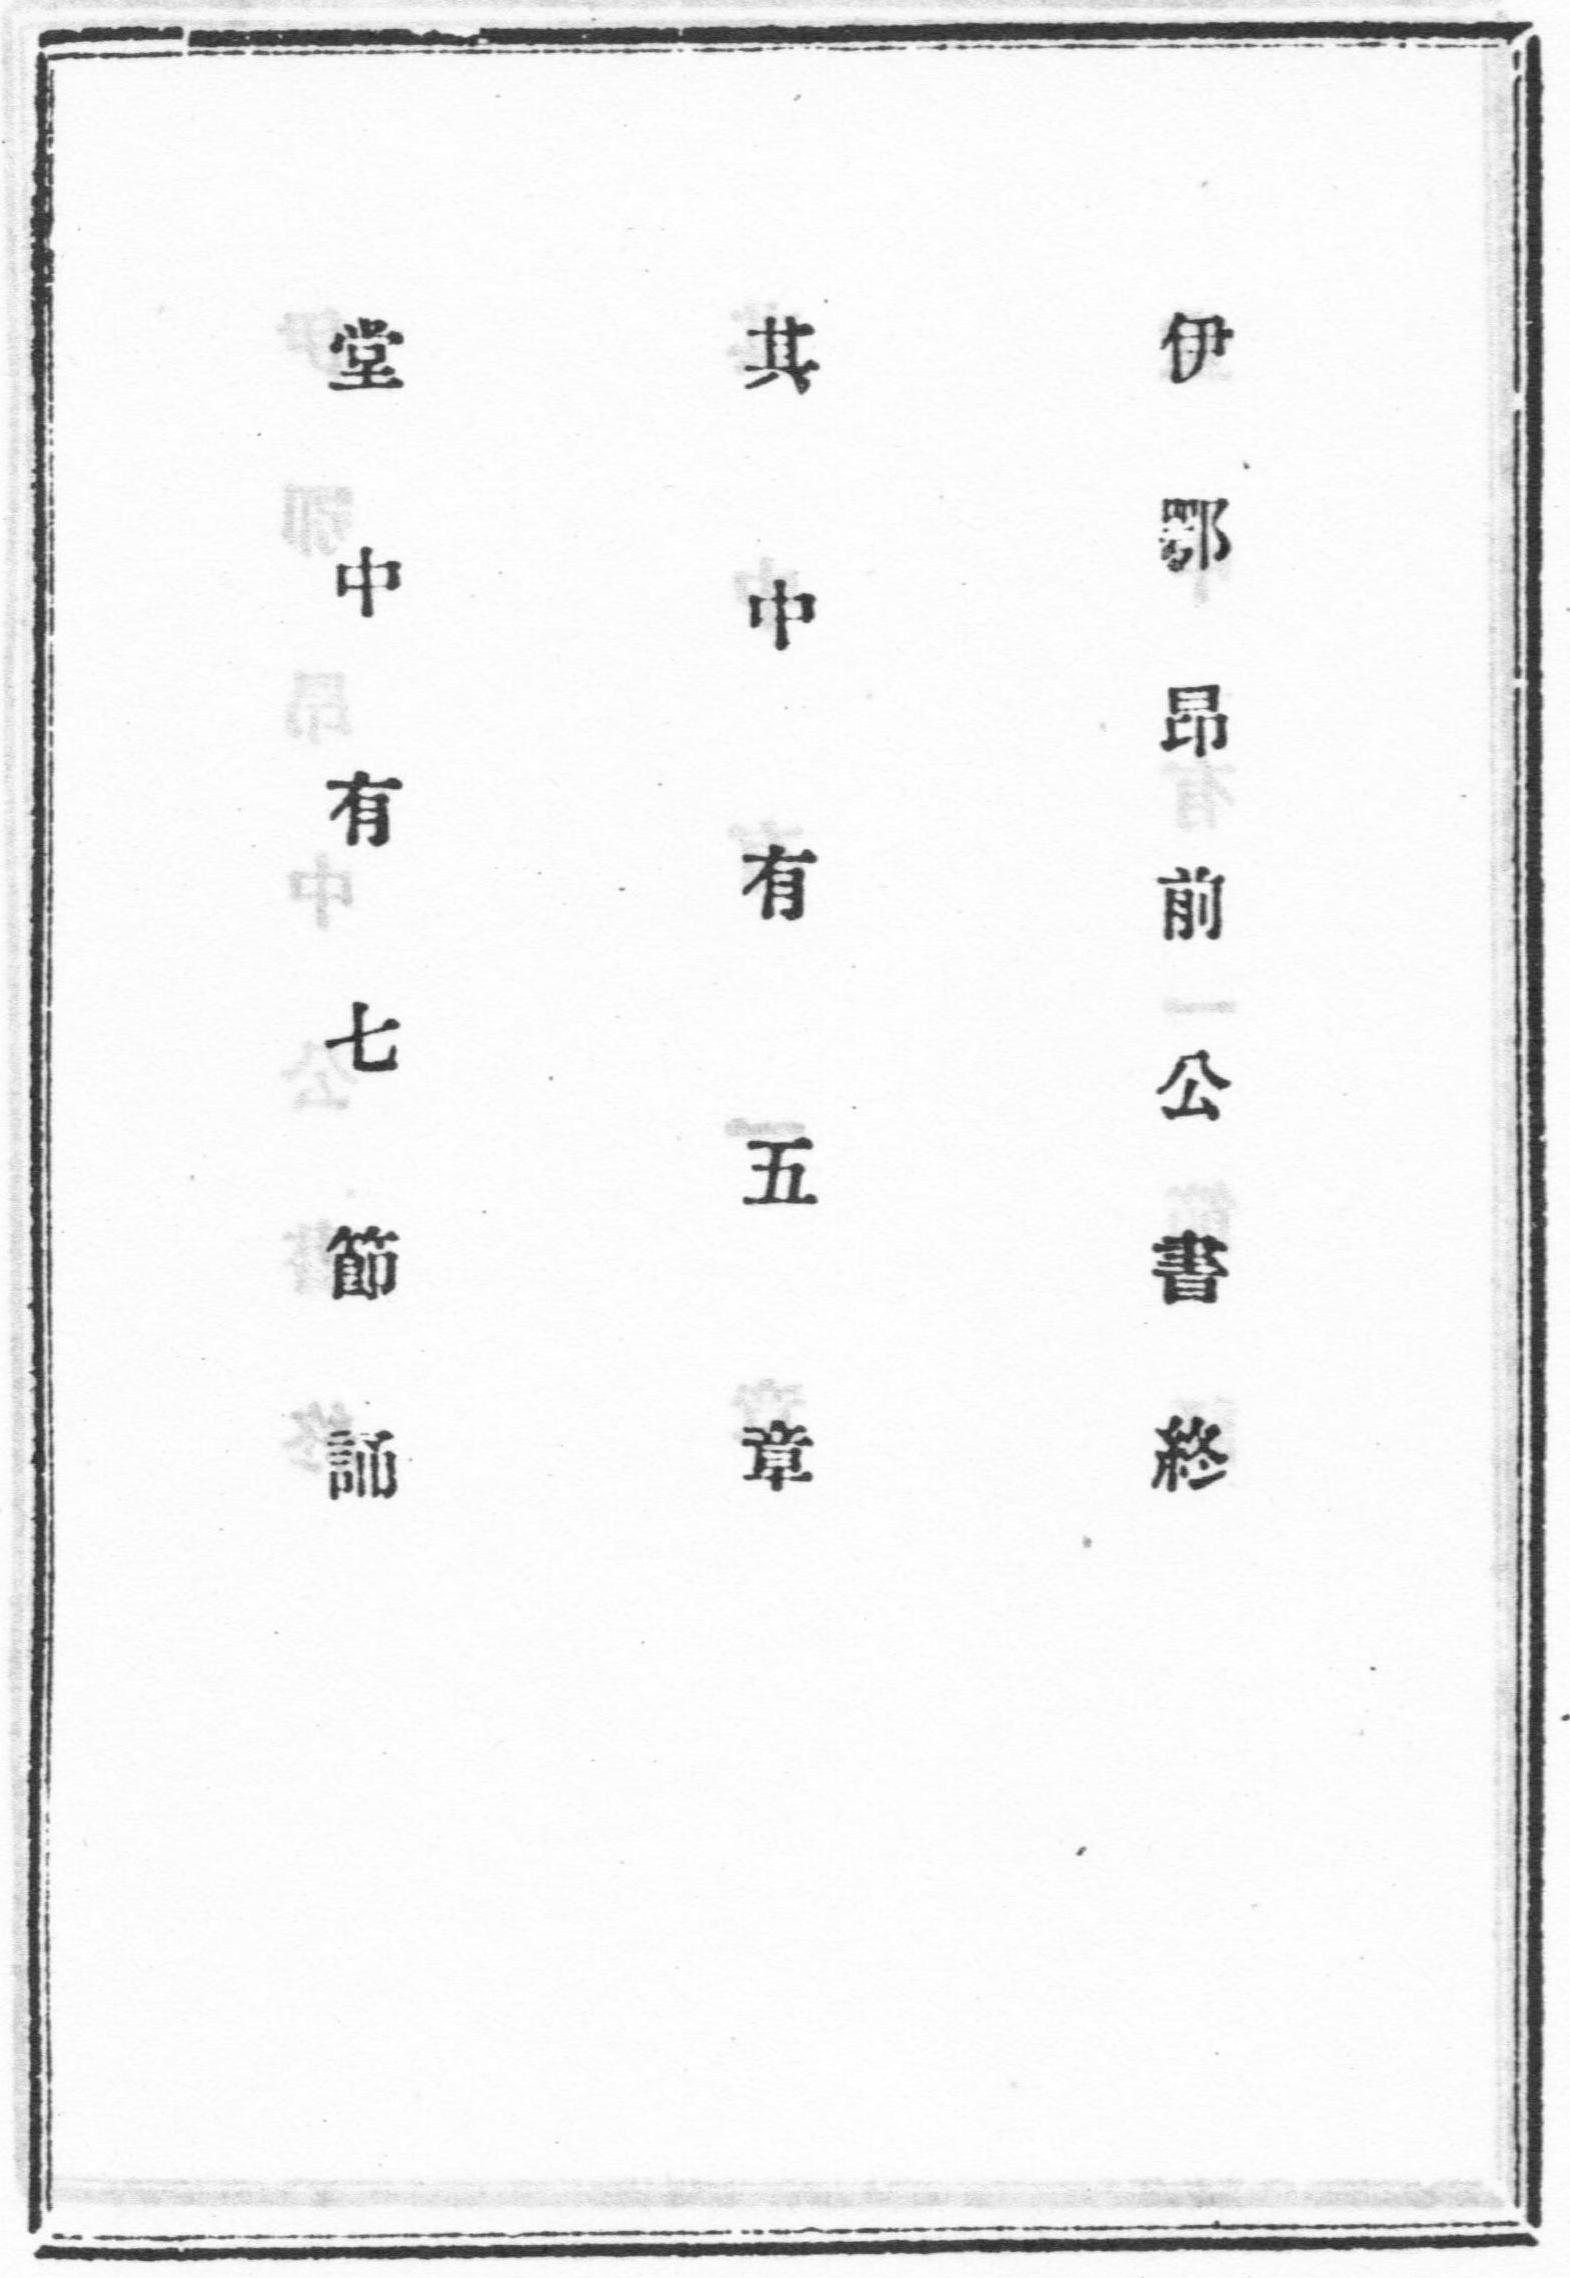 伊鄂昂前公書終
其中有五章
堂中有七節誦